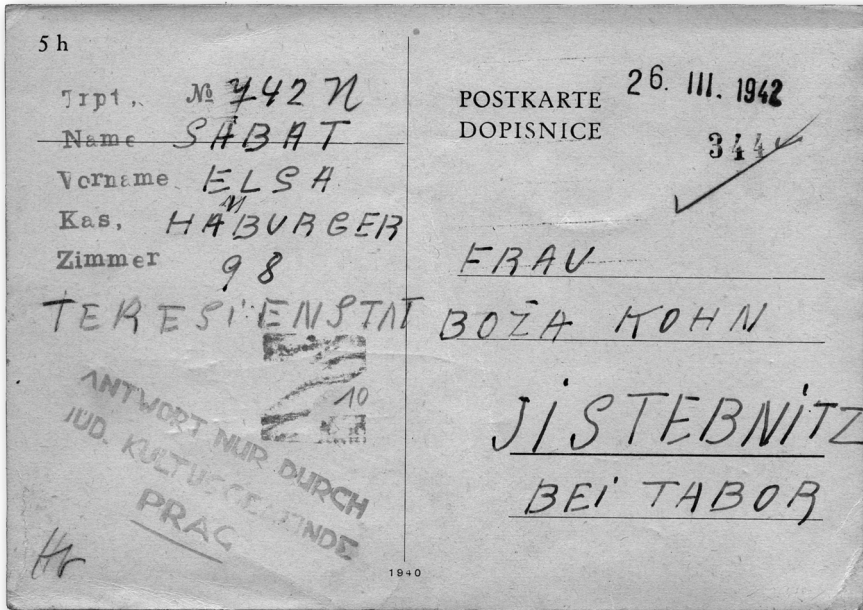 5 h
Trpt. № 742 N
Name SABAT
Vorname ELSA
Kas. HAMBURGER
Zimmer 98
TERESiENSTAT
10
ANTWORT NUR DURCH
JÜD. KULTUSGEMEINDE
PRAG
POSTKARTE
DOPISNICE
26. III. 1942
344
FRAU
BOŽA KOHN
JiSTEBNiTZ
BEi TABOR
1940